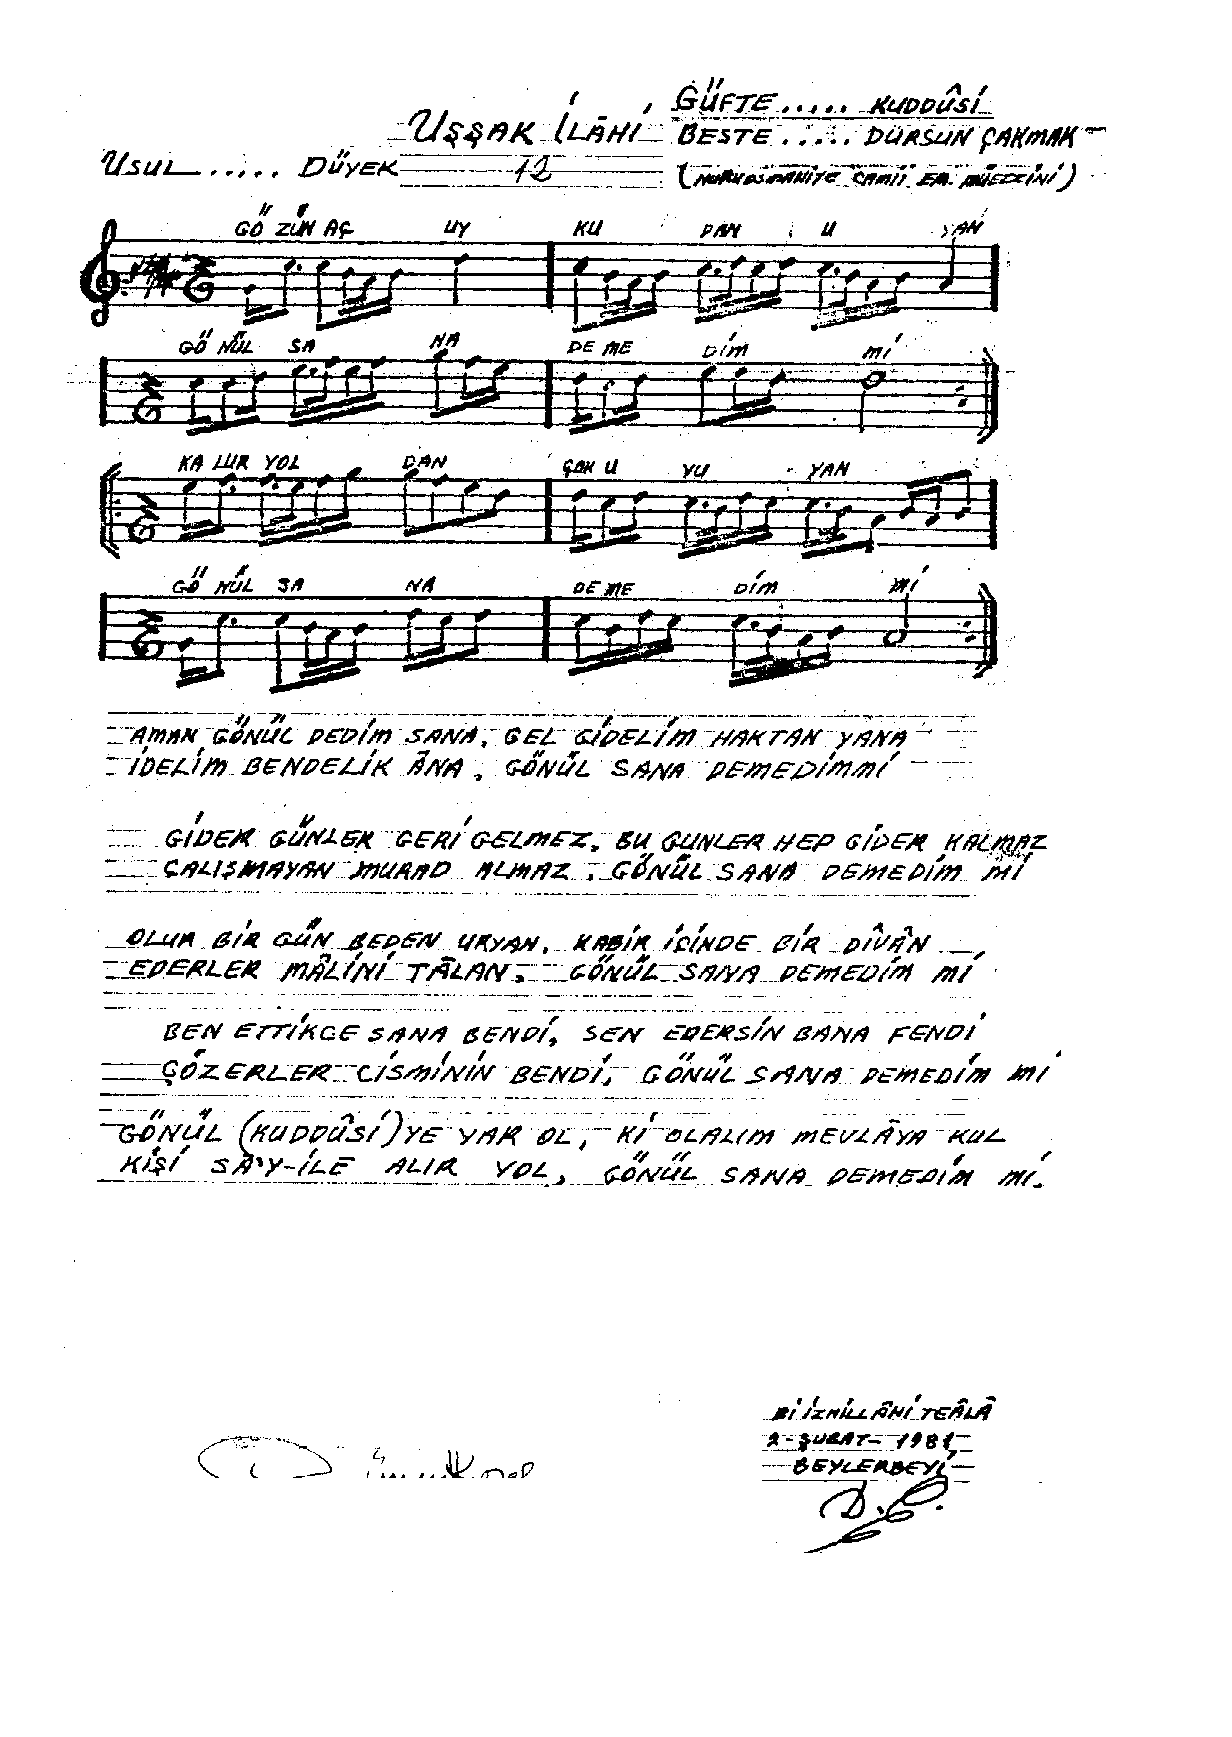 GÜFTE..... KUDDÛSİ
UŞŞAK İLÂHİ BESTE..... DURSUN ÇAKMAK
USUL..... DÜYEK 12 (NURUOSMANİYE CAMİİ EM. MÜEZZİNİ)
GÖ ZÜN AÇ UY KU DAN U YAN
GÖ NÜL SA NA DE ME DİM Mİ
KA LUR YOL DAN ÇOK U YU YAN
GÖ NÜL SA NA DE ME DİM Mİ
AMAN GÖNÜL DEDİM SANA, GEL GİDELİM HAKTAN YANA
İDELİM BENDELİK ÂNA, GÖNÜL SANA DEMEDİMMİ
GİDER GÜNLER GERİ GELMEZ, BU GUNLER HEP GİDER KALMAZ
ÇALIŞMAYAN MURAD ALMAZ, GÖNÜL SANA DEMEDİM Mİ
OLUR BİR GÜN BEDEN URYAN, KABİR İÇİNDE BİR DÎVÂN
EDERLER MÂLİNİ TÂLAN, GÖNÜL SANA DEMEDİM Mİ
BEN ETTİKCE SANA BENDİ, SEN EDERSİN BANA FENDİ
ÇÖZERLER CİSMİNİN BENDİ, GÖNÜL SANA DEMEDİM Mİ
GÖNÜL (KUDDÛSİ)YE YAR OL, Kİ OLALIM MEVLÂYA KUL
KİŞİ SA'Y-İLE ALIR YOL, GÖNÜL SANA DEMEDİM Mİ.
Bİ İZNİLLÂHİ TEÂLÂ
2-ŞUBAT-1981
BEYLERBEYİ
D.Ç.